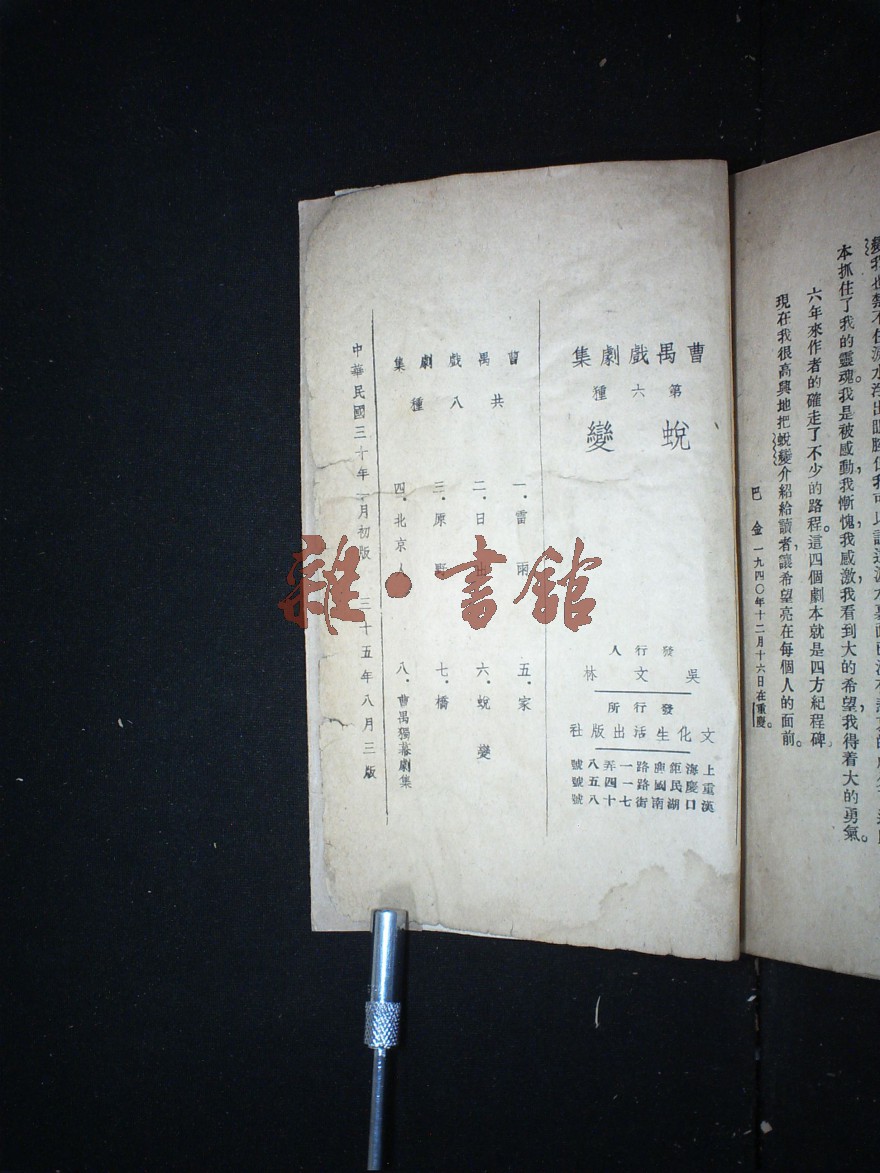 本抓住了我的靈魂。我是被感動，我慚愧，我感激，我看到大的希望，我得着大的勇氣。
六年來作者的確走了不少的路程。這四個劇本就是四方紀程碑。
現在我很高興地把蛻變介紹給讀者，讓希望亮在每個人的面前。
巴金 一九四〇年十二月十六日在重慶。
曹禺戲劇集
第六種
蛻變
發行人
吳文林
發行所
文化生活出版社
上海鉅鹿路一弄八號
重慶民國路一四五號
漢口湖南街七十八號
曹禺戲劇集
共八種
一．雷雨
二．日出
三．原野
四．北京人
五．家
六．蛻變
七．橋
八．曹禺獨幕劇集
中華民國三十年一月初版 三十五年八月三版
雜·書館